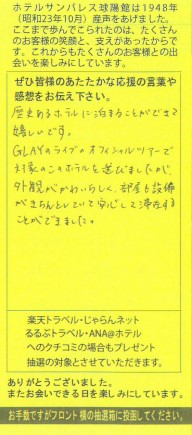 ホテルサンパレス球陽館は1948年
(昭和23年10月)産声をあげました。
ここまで歩んでこられたのは、たくさん
のお客様の笑顔と、支えがあったからで
す。これからもたくさんのお客様との出
会いを楽しみにしています。
ぜひ皆様のあたたかな応援の言葉や
感想をお伝え下さい。
歴史あるホテルに泊まることができて
嬉しいです。
GLAYのライブのオフィシャルツアーで
対象のこのホテルを選びましたが、
外観がかわいらしく、部屋も設備
がきちんとしていて安心して滞在する
ことができました。
楽天トラベル・じゃらんネット
るるぶトラベル・ANA@ホテル
へのクチコミの場合もプレゼント
抽選の対象とさせていただきます。
ありがとうございました。
またお会いできる日を楽しみにしています。
お手数ですがフロント横の抽選箱に投函してください。